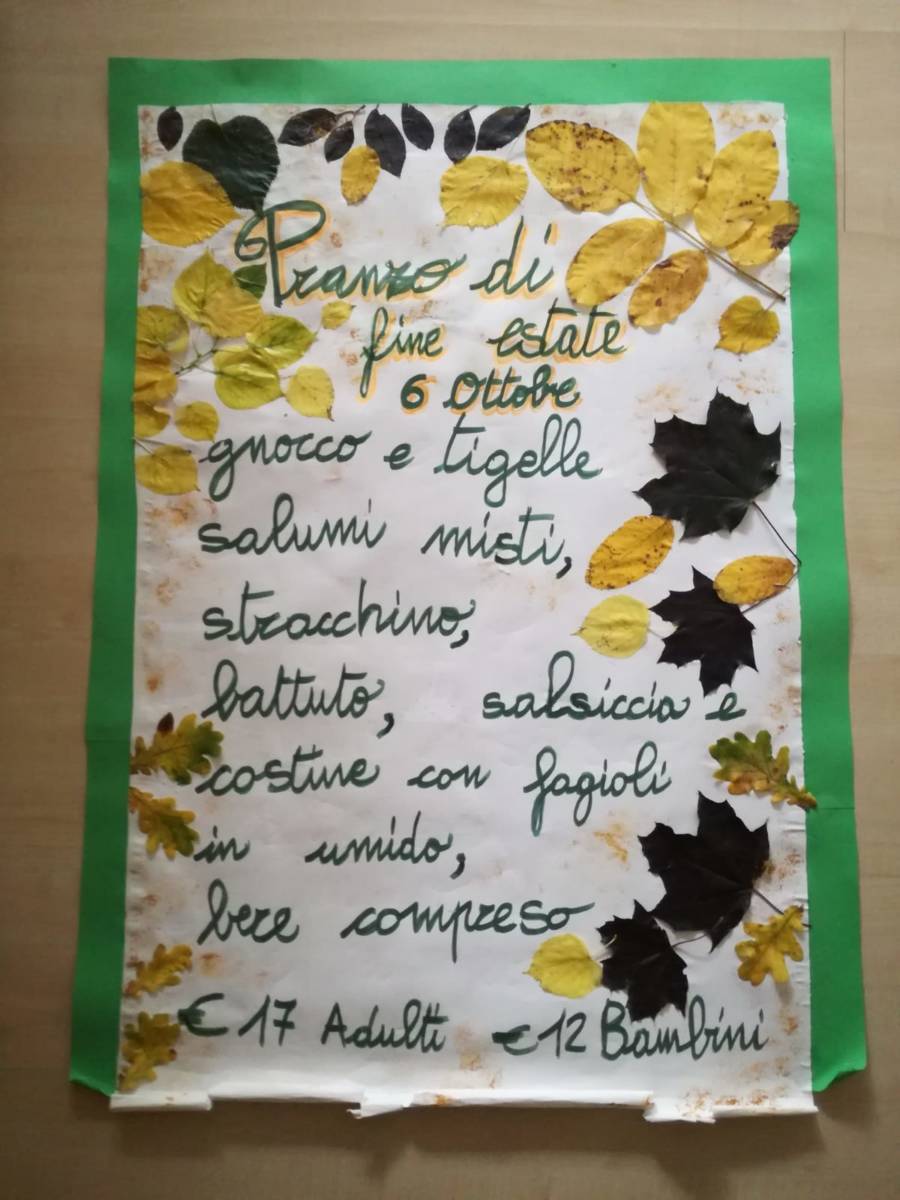 Pranzo di
fine estate
6 Ottobre
gnocco e tigelle
salumi misti,
stracchino,
battuto, salsiccia e
costine con fagioli
in umido,
bere compreso
€ 17 Adulti € 12 Bambini